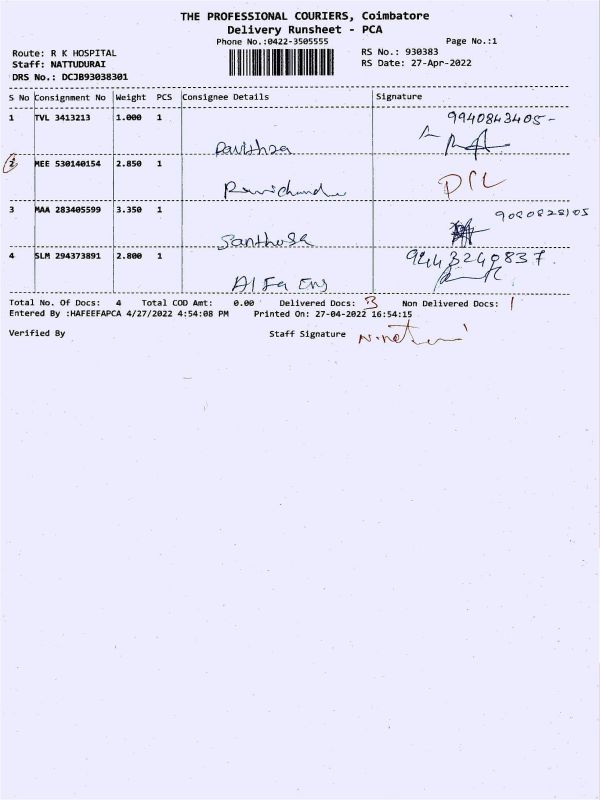 THE PROFESSIONAL COURIERS, Coimbatore
Delivery Runsheet - PCA
Phone No.:0422-3505555 Page No.:1
Route: R K HOSPITAL RS No.: 930383
Staff: NATTUDURAI RS Date: 27-Apr-2022
DRS No.: DCJB93038301
S No Consignment No Weight PCS Consignee Details Signature
1 TVL 3413213 1.000 1 9940843405-
Pavithra
2 MEE 530140154 2.850 1
Ravichand
3 MAA 283405599 3.350 1
Santhosh
4 SLM 294373891 2.800 1 9443240837
Al Fa Eng
Total No. Of Docs: 4 Total COD Amt: 0.00 Delivered Docs: 3 Non Delivered Docs: 1
Entered By :HAFEEFAPCA 4/27/2022 4:54:08 PM Printed On: 27-04-2022 16:54:15
Verified By Staff Signature